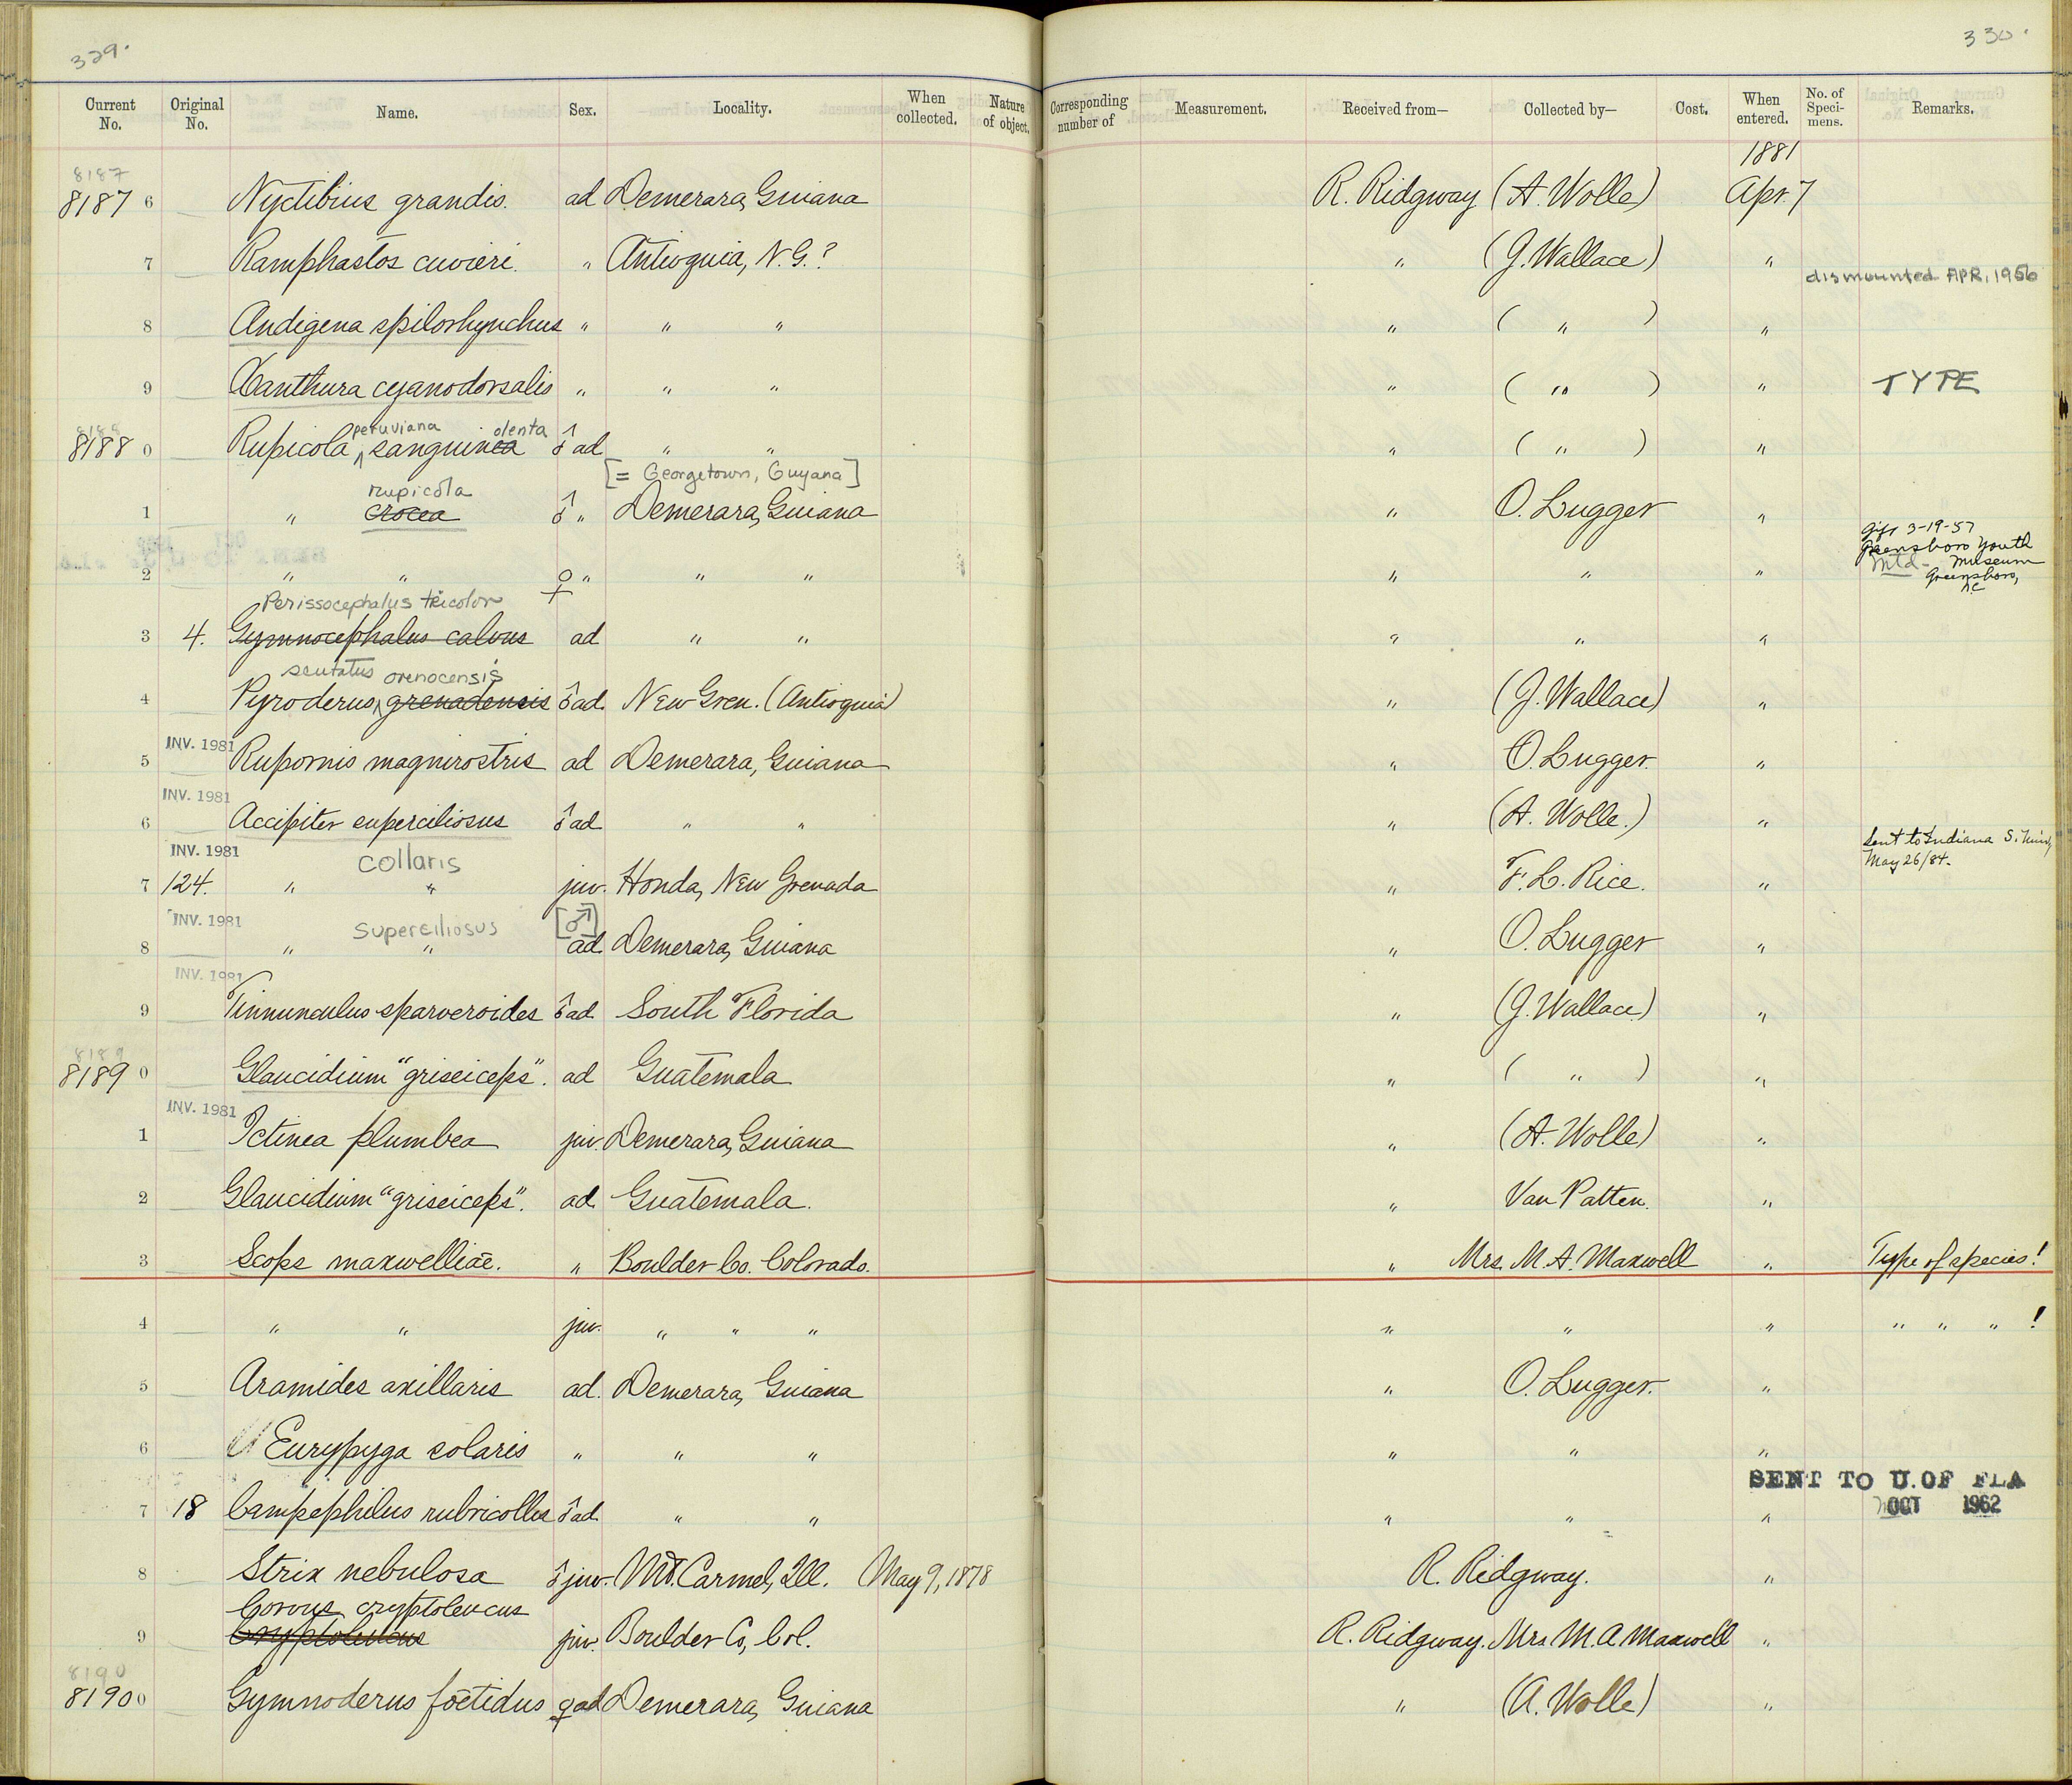 329.
330.
Current No. Original No. Name. Sex. Locality. When collected. Nature of object. Corresponding number of Measurement. Received from— Collected by— Cost. When entered. No. of Specimens. Remarks.
8187 1881
8187 6 Nyctibius grandis. ad Demerara, Guiana R. Ridgway (A. Wolle) Apr. 7
7 Ramphastos cuvieri. " Antioquia, N.G.? " (J. Wallace) " dismounted APR, 1956
8 Andigena spilorhynchus " " " " ( " ) "
9 Xanthura cyanodorsalis " " " " ( " ) " TYPE
8188 peruviana olenta
8188 0 Rupicola ^ sanguinea ♂ ad " " " ( " ) "
[= Georgetown, Guyana]
rupicola
1 " crocea ♂ " Demerara, Guiana " O. Lugger "
2 " " ♀ " " " " " " Gift 3-19-57 Greensboro Youth Mtd- Museum Greensboro, N.C
Perissocephalus tricolor
3 4. Gymnocephalus calvus ad " " " " "
scutatus orenocensis
4 Pyroderus ^ grenadensis ♂ ad. New Gren. (Antioquia) " (J. Wallace) "
INV. 1981
5 Rupornis magnirostris ad Demerara, Guiana " O. Lugger. "
INV. 1981
6 Accipiter superciliosus ♂ ad " " " (A. Wolle.) "
INV. 1981 collaris Sent to Indiana May 26/84.
7 124. " " juv. Honda, New Grenada " F. L. Rice. "
INV. 1981 superciliosus [♂]
8 " " ad. Demerara, Guiana " O. Lugger "
INV. 1981
9 Tinnunculus sparveroides ♂ ad South Florida " (J. Wallace) "
8189
8189 0 Glaucidium "griseiceps". ad Guatemala " ( " ) "
INV. 1981
1 Ictinea plumbea juv. Demerara, Guiana " (A. Wolle) "
2 Glaucidium "griseiceps". ad. Guatemala. " Van Patten. "
3 Scops maxwelliæ. " Boulder Co. Colorado. " Mrs. M. A. Maxwell " Type of species!
4 " " juv. " " " " " " " " " !
5 Aramides axillaris ad. Demerara, Guiana " O. Lugger. "
6 Eurypyga solaris " " " " " "
SENT TO U.OF FLA
OCT 1962
7 18 Campephilus rubricollis ♂ ad. " " " " "
8 Strix nebulosa ♂ juv. Mt. Carmel, Ill. May 9, 1878 R. Ridgway. "
Corvus cryptoleucus
9 Cryptoleucus juv. Boulder Co, Col. R. Ridgway. Mrs M. A Maxwell "
8190
8190 0 Gymnoderus foetidus ♀ ad Demerara, Guiana " (A. Wolle) "